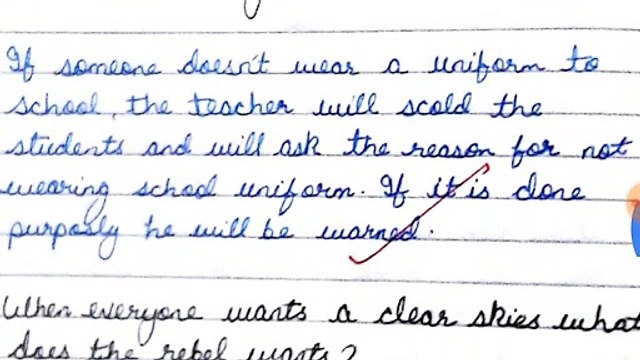 If someone doesn't wear a uniform to
school, the teacher will scold the
students and will ask the reason for not
wearing school uniform. If it is done
purposly he will be warned.
When everyone wants a clear skies what
does the rebel wants?